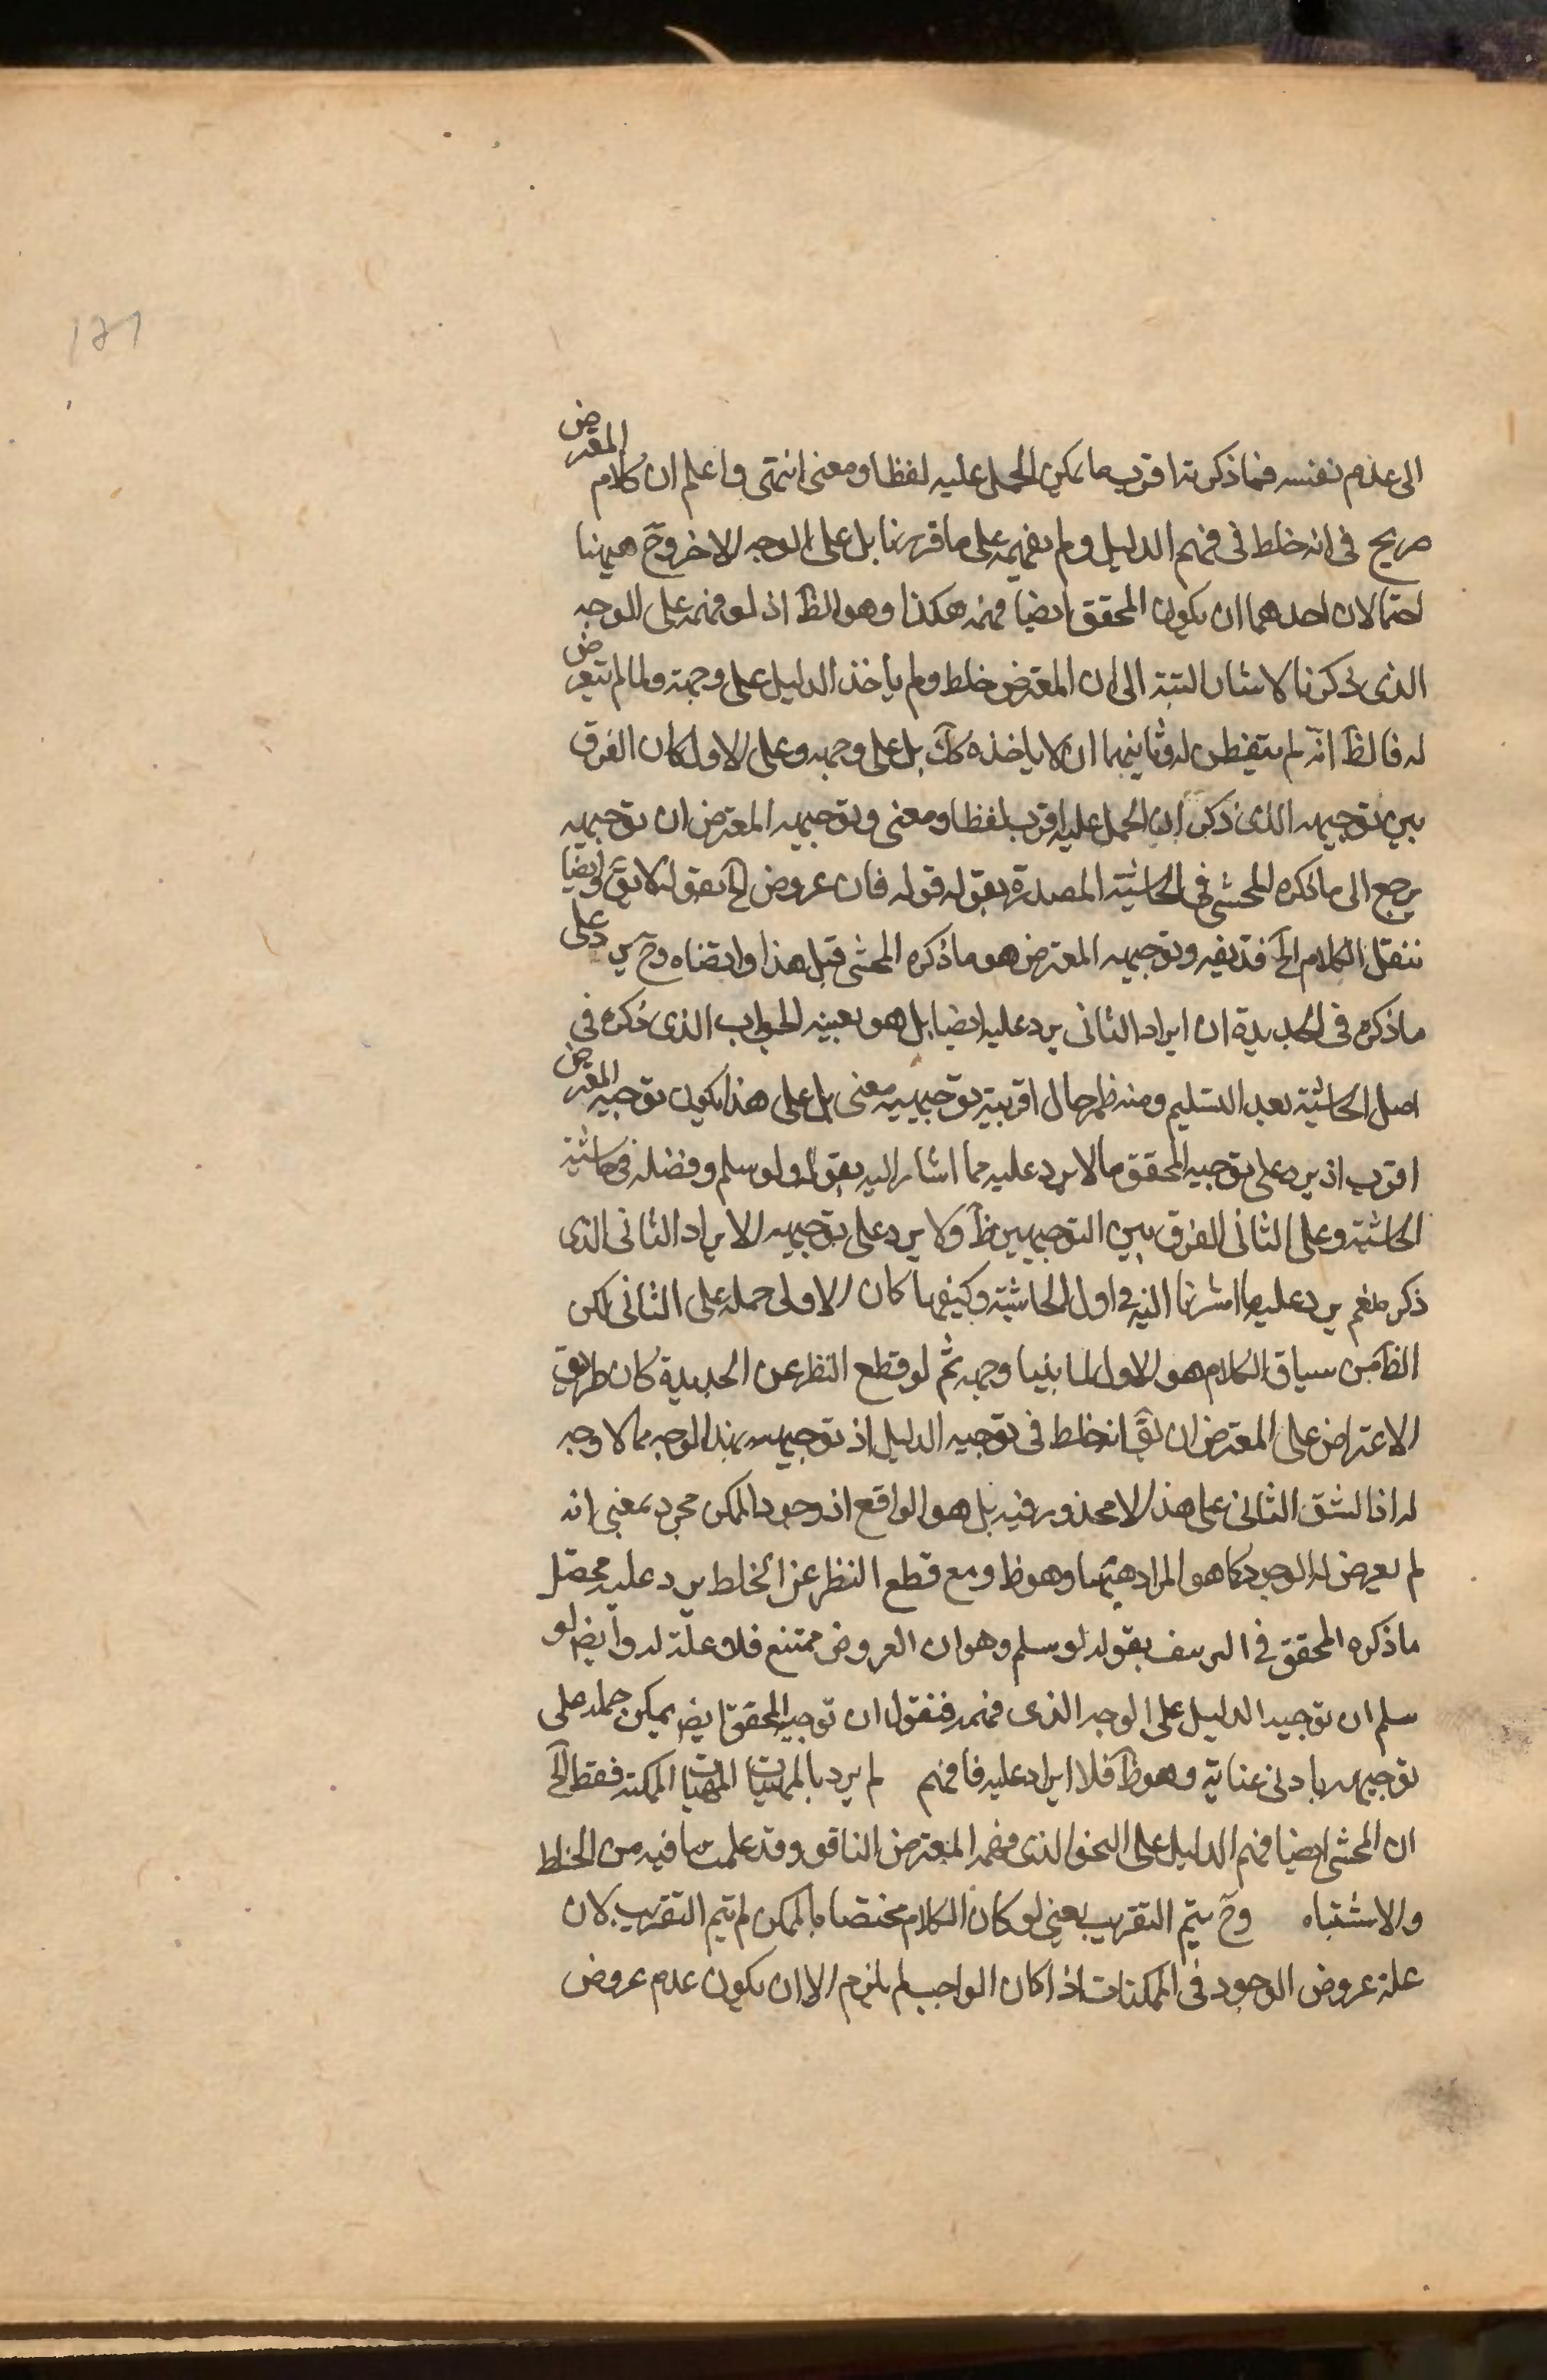 ١٢١
الى عدم نفسه فماذكرته اقرب ما يمكن الحمل عليه لفظا ومعنى انتهى واعلم ان كلام المعترض
صريح في انه خلط في فهم الدليل ولم يفهمه على ما قررنا بل على الوجه الاخر وح ههنا
احتمالان احدهما ان يكون المحقق ايضا فهمه هكذا وهو الظ اذ لو فهمه على الوجه
الذى ذكرنا لاشار البتة الى ان المعترض خلط ولم ياخذ الدليل على وجهه ولما لم يتعرض
له فالظ انه لم يتفطن له وثانيهما ان لا ياخذه كك بل على وجهه وعلى الاول كان الفرق
بين توجيهه الذى ذكر ان الحمل عليه اقرب لفظا ومعنى وتوجيهه المعترض ان توجيهه
يرجع الى ما ذكره المحشى في الحاشية المصدرة بقوله قوله فان عروض الخ بقوله لا يق وايضا
ننقل الكلام الخ فتديفه وتوجيهه المعترض هو ما ذكره المحشى قبل هذا وابقناه وح يرد على
ما ذكره في الجديدة ان ايراد الثانى يرد عليه ايضا بل هو بعينه الجواب الذى ذكره في
اصل الحاشية بعد التسليم ومنه ظهر حال اقربية توجيهه معنى بل على هذا يكون توجيه المعترض
اقرب اذ يرد على توجيه المحقق ما لا يرد عليه مما اشار اليه بقوله ولو سلم وفضله في حاشية
الحاشية وعلى الثانى الفرق بين التوجيهين ظ ولا يرد على توجيهه الايراد الثانى الذى
ذكر نعم يرد عليه ما اشرنا اليه في اول الحاشية وكيفما كان الاولى حمله على الثانى لكن
الظ من سياق الكلام هو الاول لما بنينا وجهه ثم لو قطع النظر عن الجديدة كان طريق
الاعتراض على المعترض ان يق انه خلط في توجيه الدليل اذ توجيهه بهذا الوجه مما لا وجه
له اذ الشق الثانى على هذا لا محذور فيه بل هو الواقع اذ وجود الممكن مجرد بمعنى انه
لم يعرض له الوجود كما هو المراد ههنا وهو ظ ومع قطع النظر عن الخلط يرد عليه محصل
ما ذكره المحقق في بقوله لو سلم وهو ان العروض ممتنع فلا علة له وايض لو
سلم ان توجيه الدليل على الوجه الذى فهمه فنقول ان توجيه المحقق ايض يمكن حمله على
توجيهه بادنى عناية وهو ظ فلا ايراد عليه فافهم لم يرد بالمهيات المهيات الممكنة فقط الخ
ان المحشى ايضا فهم الدليل على النحو الذى فهمه المعترض الناقو وقد علمت ما فيه من الخلط
والاشتباه وح يتم التقريب يعنى لو كان الكلام مختصا بالممكن لم يتم التقريب لان
علة عروض الوجود في الممكنات اذا كان الواجب لم يلزم الا ان يكون عدم عروض